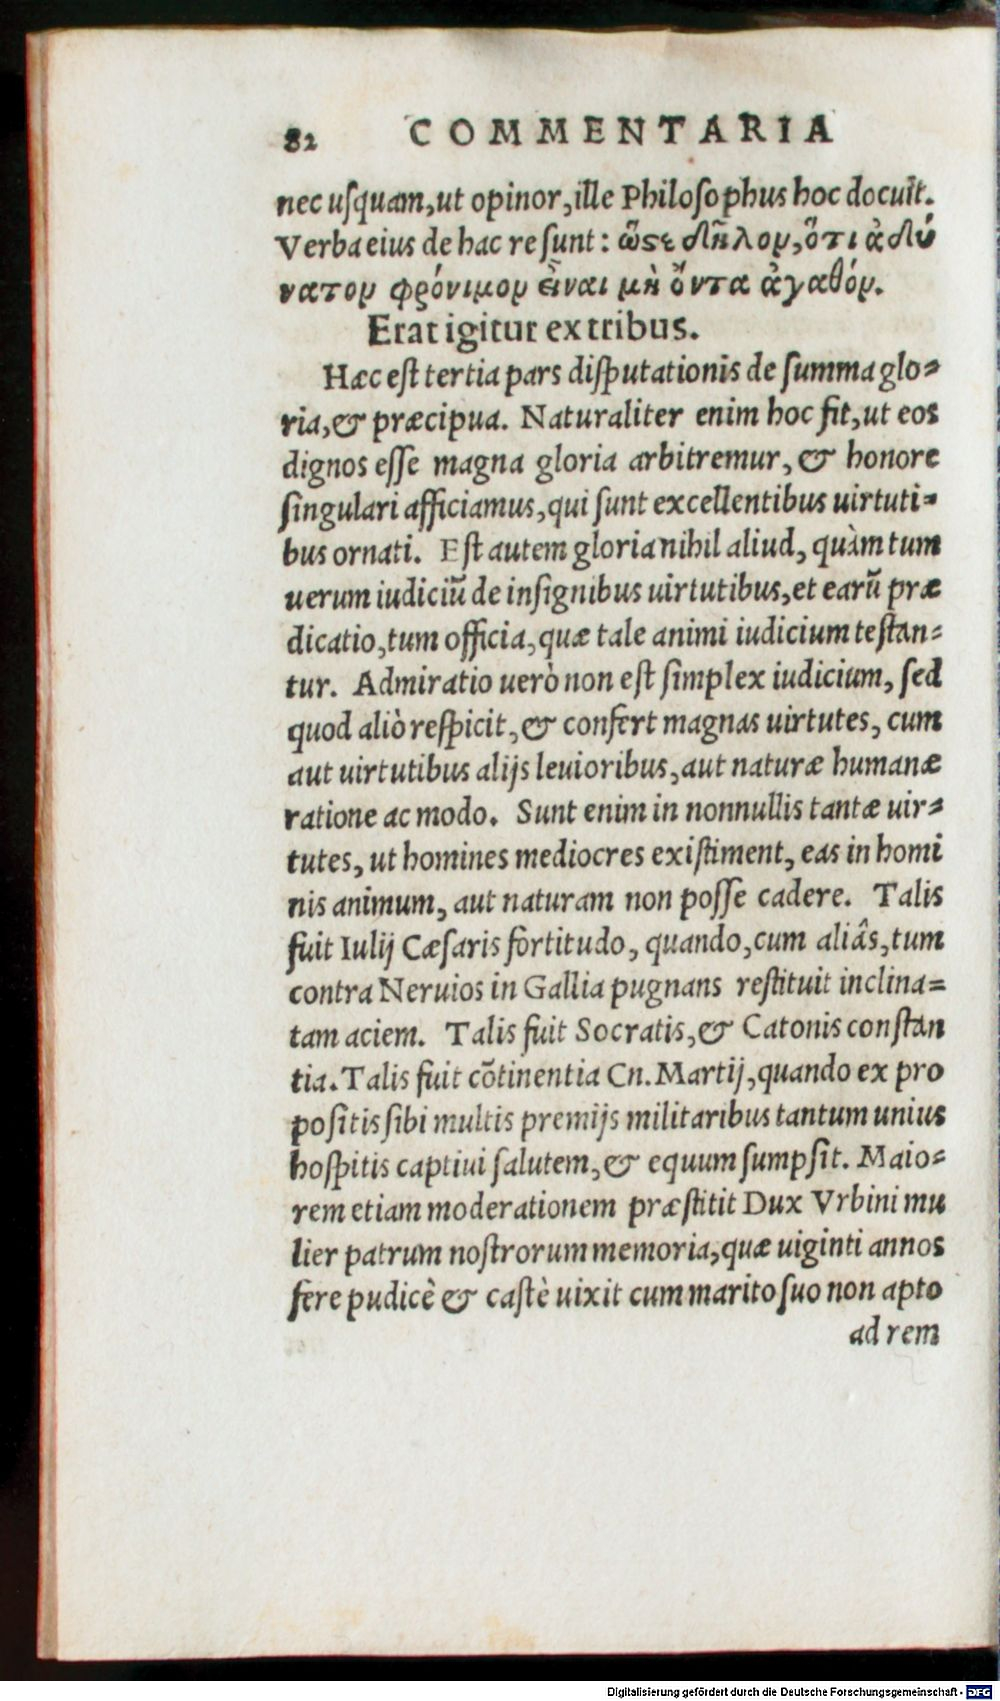 82 COMMENTARIA
nec usquam, ut opinor, ille Philosophus hoc docuit.
Verba eius de hac re sunt: ὥστε δῆλον, ὅτι ἀδύ
νατον φρόνιμον εἶναι μὴ ὄντα ἀγαθόν.
Erat igitur ex tribus.
Hæc est tertia pars disputationis de summa glo=
ria, & præcipua. Naturaliter enim hoc fit, ut eos
dignos esse magna gloria arbitremur, & honore
singulari afficiamus, qui sunt excellentibus uirtuti=
bus ornati. Est autem gloria nihil aliud, quàm tum
uerum iudiciũ de insignibus uirtutibus, et earũ præ
dicatio, tum officia, quæ tale animi iudicium testan=
tur. Admiratio uerò non est simplex iudicium, sed
quod aliò respicit, & confert magnas uirtutes, cum
aut uirtutibus alijs leuioribus, aut naturæ humanæ
ratione ac modo. Sunt enim in nonnullis tantæ uir=
tutes, ut homines mediocres existiment, eas in homi
nis animum, aut naturam non posse cadere. Talis
fuit Iulij Cæsaris fortitudo, quando, cum aliâs, tum
contra Neruios in Gallia pugnans restituit inclina=
tam aciem. Talis fuit Socratis, & Catonis constan
tia. Talis fuit cõtinentia Cn. Martij, quando ex pro
positis sibi multis premijs militaribus tantum unius
hospitis captiui salutem, & equum sumpsit. Maio=
rem etiam moderationem præstitit Dux Vrbini mu
lier patrum nostrorum memoria, quæ uiginti annos
fere pudicè & castè uixit cum marito suo non apto
ad rem
Digitalisierung gefördert durch die Deutsche Forschungsgemeinschaft - DFG